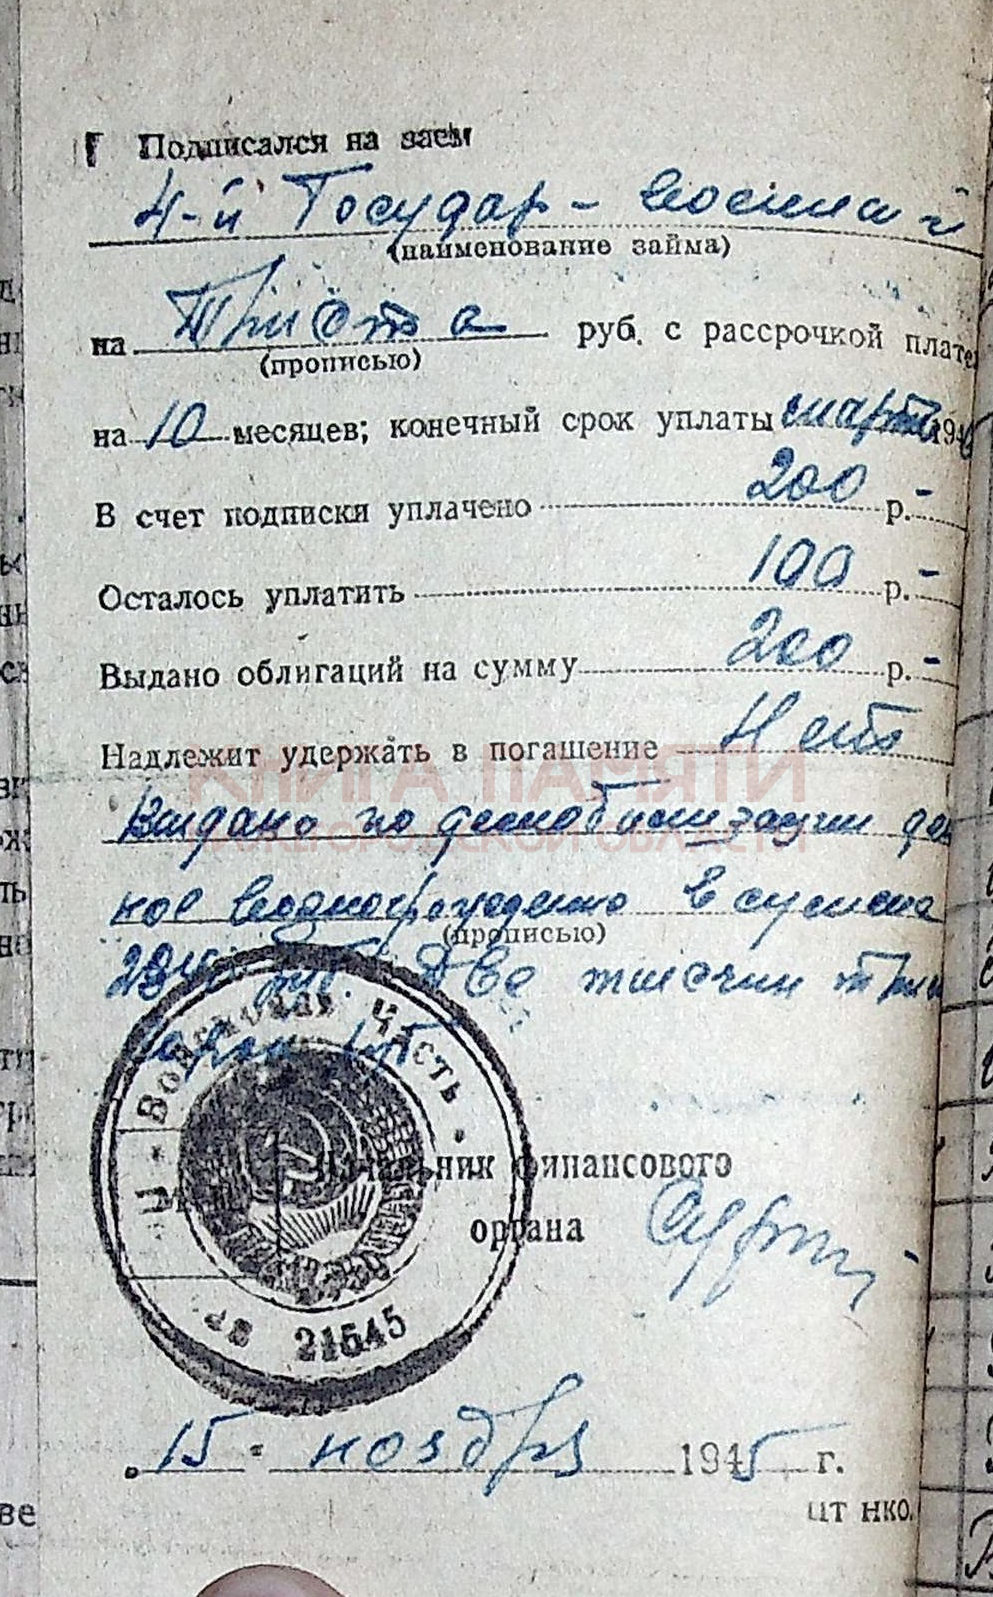 Подписался на заем
4-й Государ - военный
(наименование займа)
на Триста руб. с рассрочкой плате
(прописью)
на 10 месяцев; конечный срок уплаты март 1946
В счет подписки уплачено 200 р. -
Осталось уплатить 100 р. -
Выдано облигаций на сумму 200 р. -
Надлежит удержать в погашение Нет
КНИГА ПАМЯТИ
НИЖЕГОРОДСКОЙ ОБЛАСТИ
Выдано по демобилизации
ное вознаграждено в сумме
(прописью)
руб. Две тысячи
Войсковая Часть
Начальник финансового
органа
21545
15 " ноября 1945 г.
ве
шт нко.